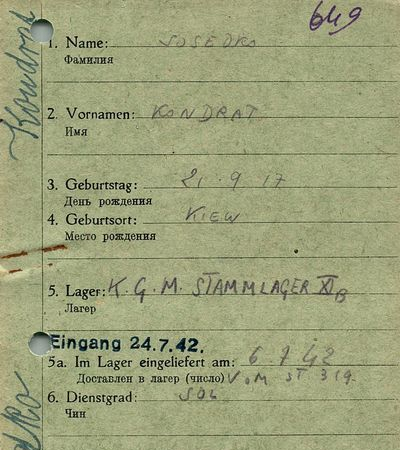 649
1. Name: SOSEDKO
Фамилия
2. Vornamen: KONDRAT
Имя
3. Geburtstag: 21.9.17
День рождения
4. Geburtsort: KIEW
Место рождения
5. Lager: K.G.M. STAMMLAGER XI B
Лагер
Eingang 24.7.42.
5a. Im Lager eingeliefert am: 6 7 42
Доставлен в лагер (число) VOM ST 319
6. Dienstgrad: SOL
Чин